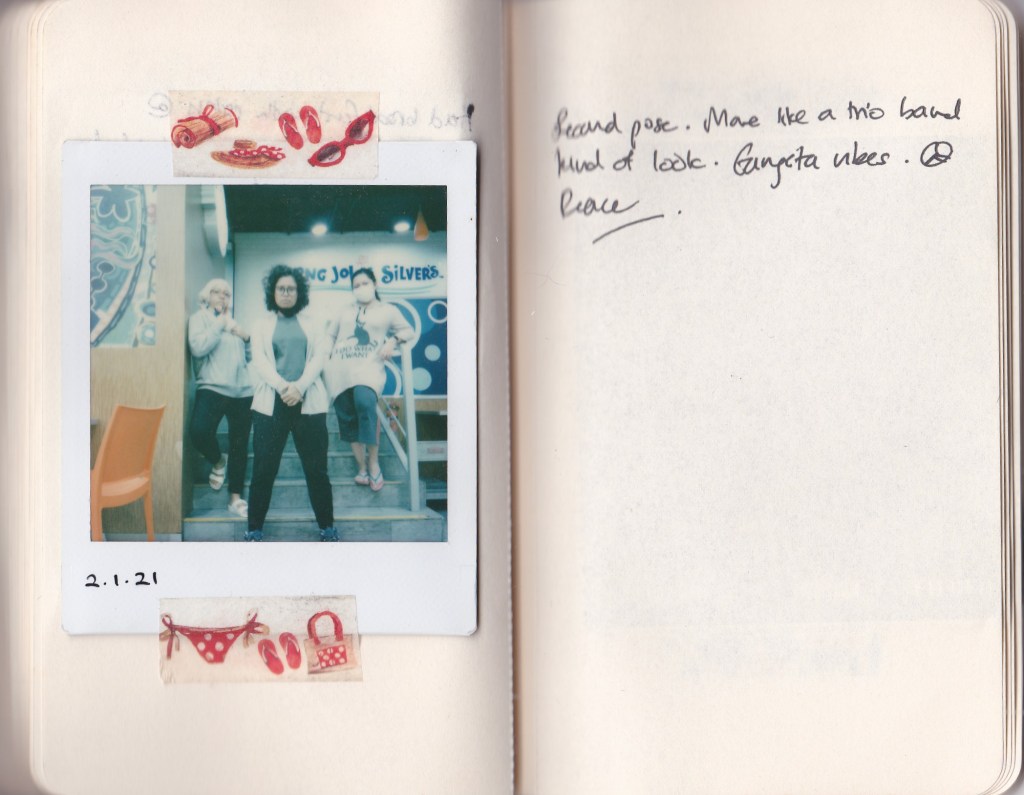 NG JOHN SILVER'S
I DO WHAT
I WANT
2.1.21
Second pose. More like a trio band
kind of look. Gangsta vibes. ☮
Peace.